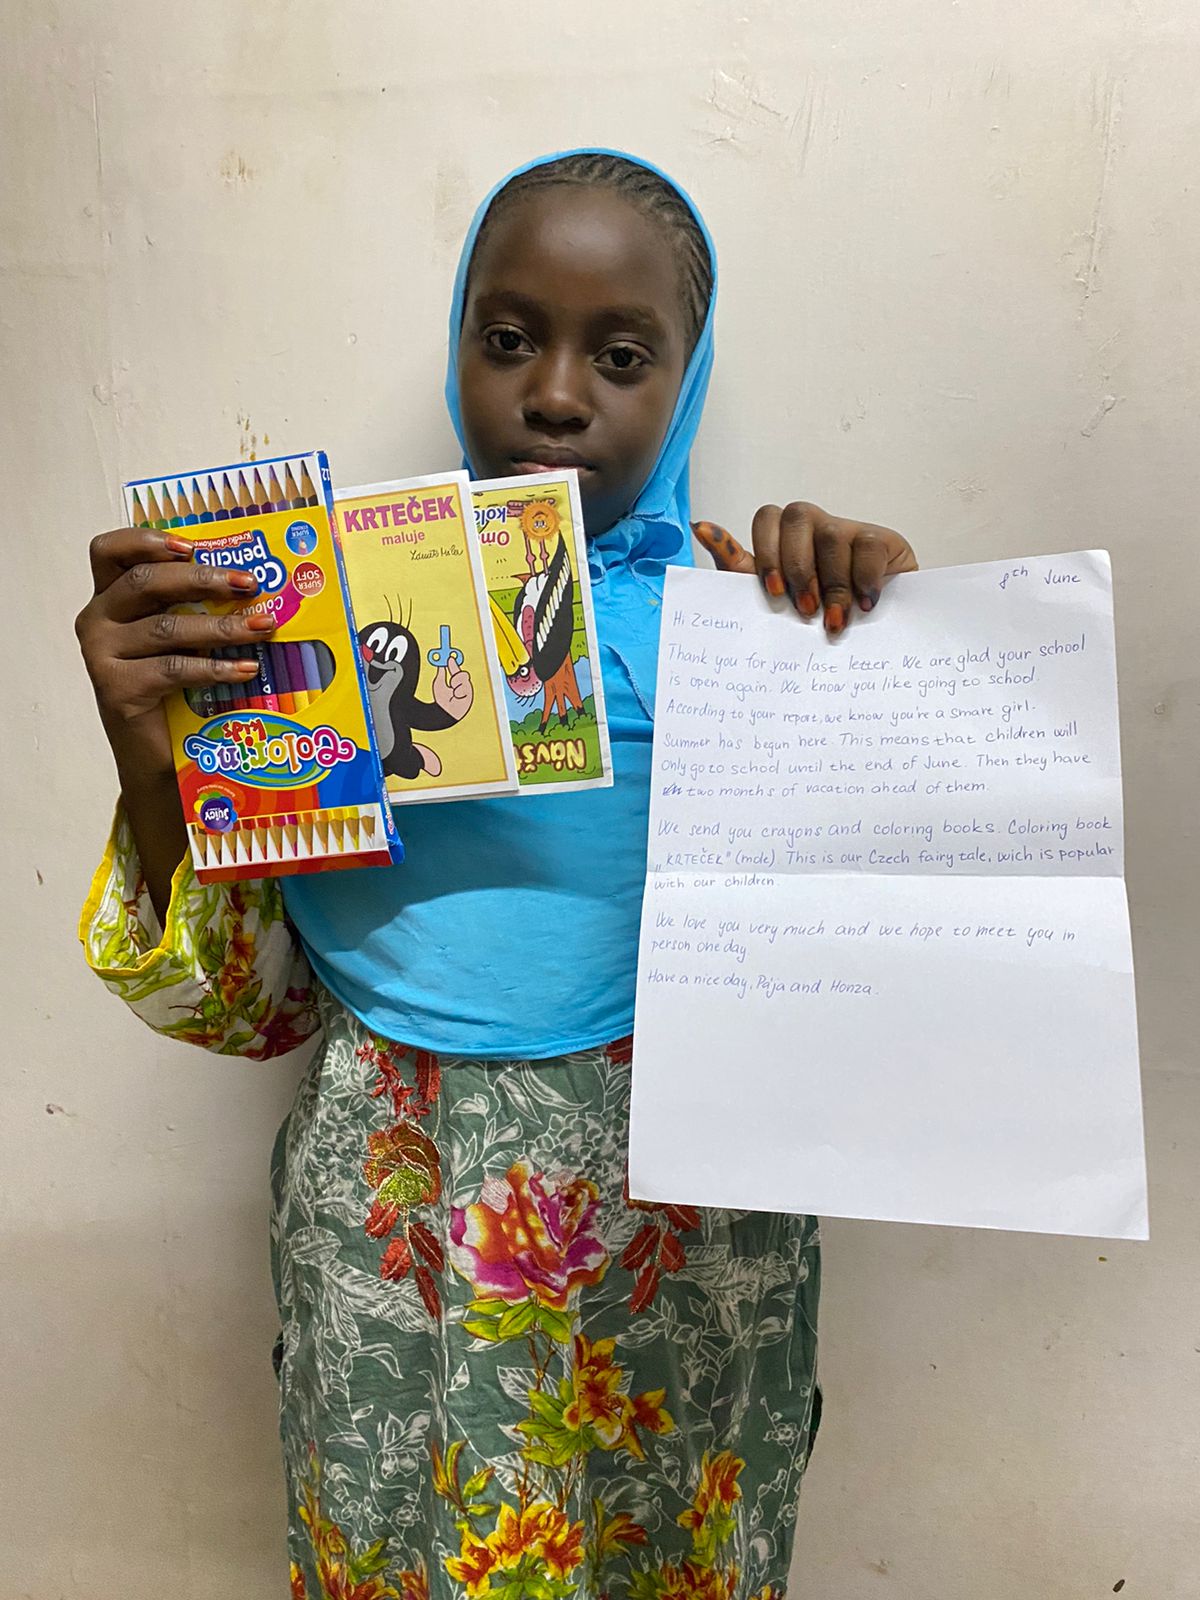 12
Kredki ołówkowe
pencils
SUPER
SOFT
Coloring
kids
JUICY
KRTEČEK
maluje
Návš
8th June
Hi Zeitun,
Thank you for your last letter. We are glad your school
is open again. We know you like going to school.
According to your report, we know you're a smart girl.
Summer has begun here. This means that children will
only go to school until the end of June. Then they have
two months of vacation ahead of them.
We send you crayons and coloring books. Coloring book
„KRTEČEK" (mole). This is our Czech fairy tale, wich is popular
with our children.
We love you very much and we hope to meet you in
person one day
Have a nice day, Pája and Honza.